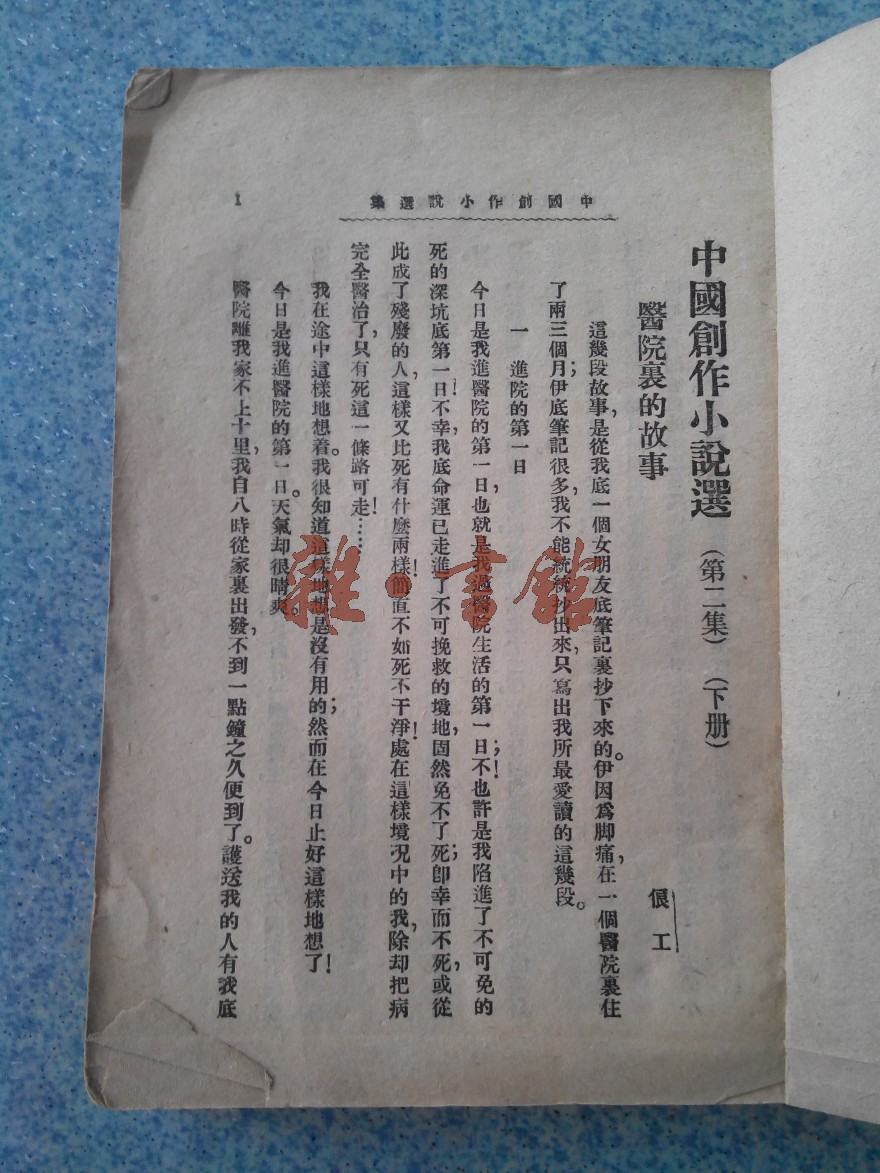 中國創作小說選集
1
中國創作小說選（第二集）（下册）
醫院裏的故事
俍工
這幾段故事，是從我底一個女朋友底筆記裏抄下來的。伊因爲脚痛，在一個醫院裏住
了兩三個月；伊底筆記很多，我不能統統抄出來，只寫出我所最愛讀的這幾段。
一　進院的第一日
今日是我進醫院的第一日，也就是我過醫院生活的第一日；不！也許是我陷進了不可免的
死的深坑底第一日！不幸，我底命運已走進了不可挽救的境地，固然免不了死；卽幸而不死，或從
此成了殘廢的人，這樣又比死有什麼兩樣！簡直不如死不干淨！處在這樣境况中的我，除却把病
完全醫治了，只有死這一條路可走！……
我在途中這樣地想着。我很知道這樣地想是沒有用的；然而在今日止好這樣地想了！
今日是我進醫院的第一日。天氣却很晴爽。
醫院離我家不上十里，我自八時從家裏出發，不到一點鐘之久便到了。護送我的人有我底
雜·書館